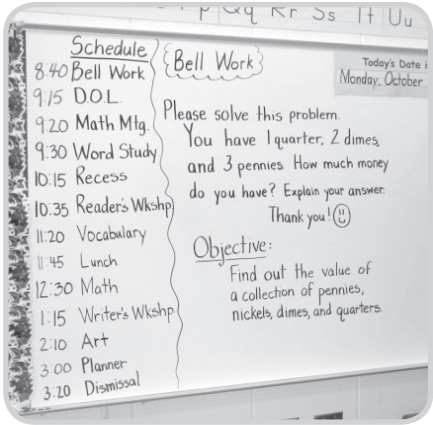 Qq Rr Ss Tt Uu
Schedule
8:40 Bell Work
9:15 D.O.L.
9:20 Math Mtg.
9:30 Word Study
10:15 Recess
10:35 Reader's Wkshp
11:20 Vocabulary
11:45 Lunch
12:30 Math
1:15 Writer's Wkshp
2:10 Art
3:00 Planner
3:20 Dismissal
Bell Work
Today's Date i
Monday, October
Please solve this problem.
You have 1 quarter, 2 dimes,
and 3 pennies. How much money
do you have? Explain your answer.
Thank you!
Objective:
Find out the value of
a collection of pennies,
nickels, dimes, and quarters.